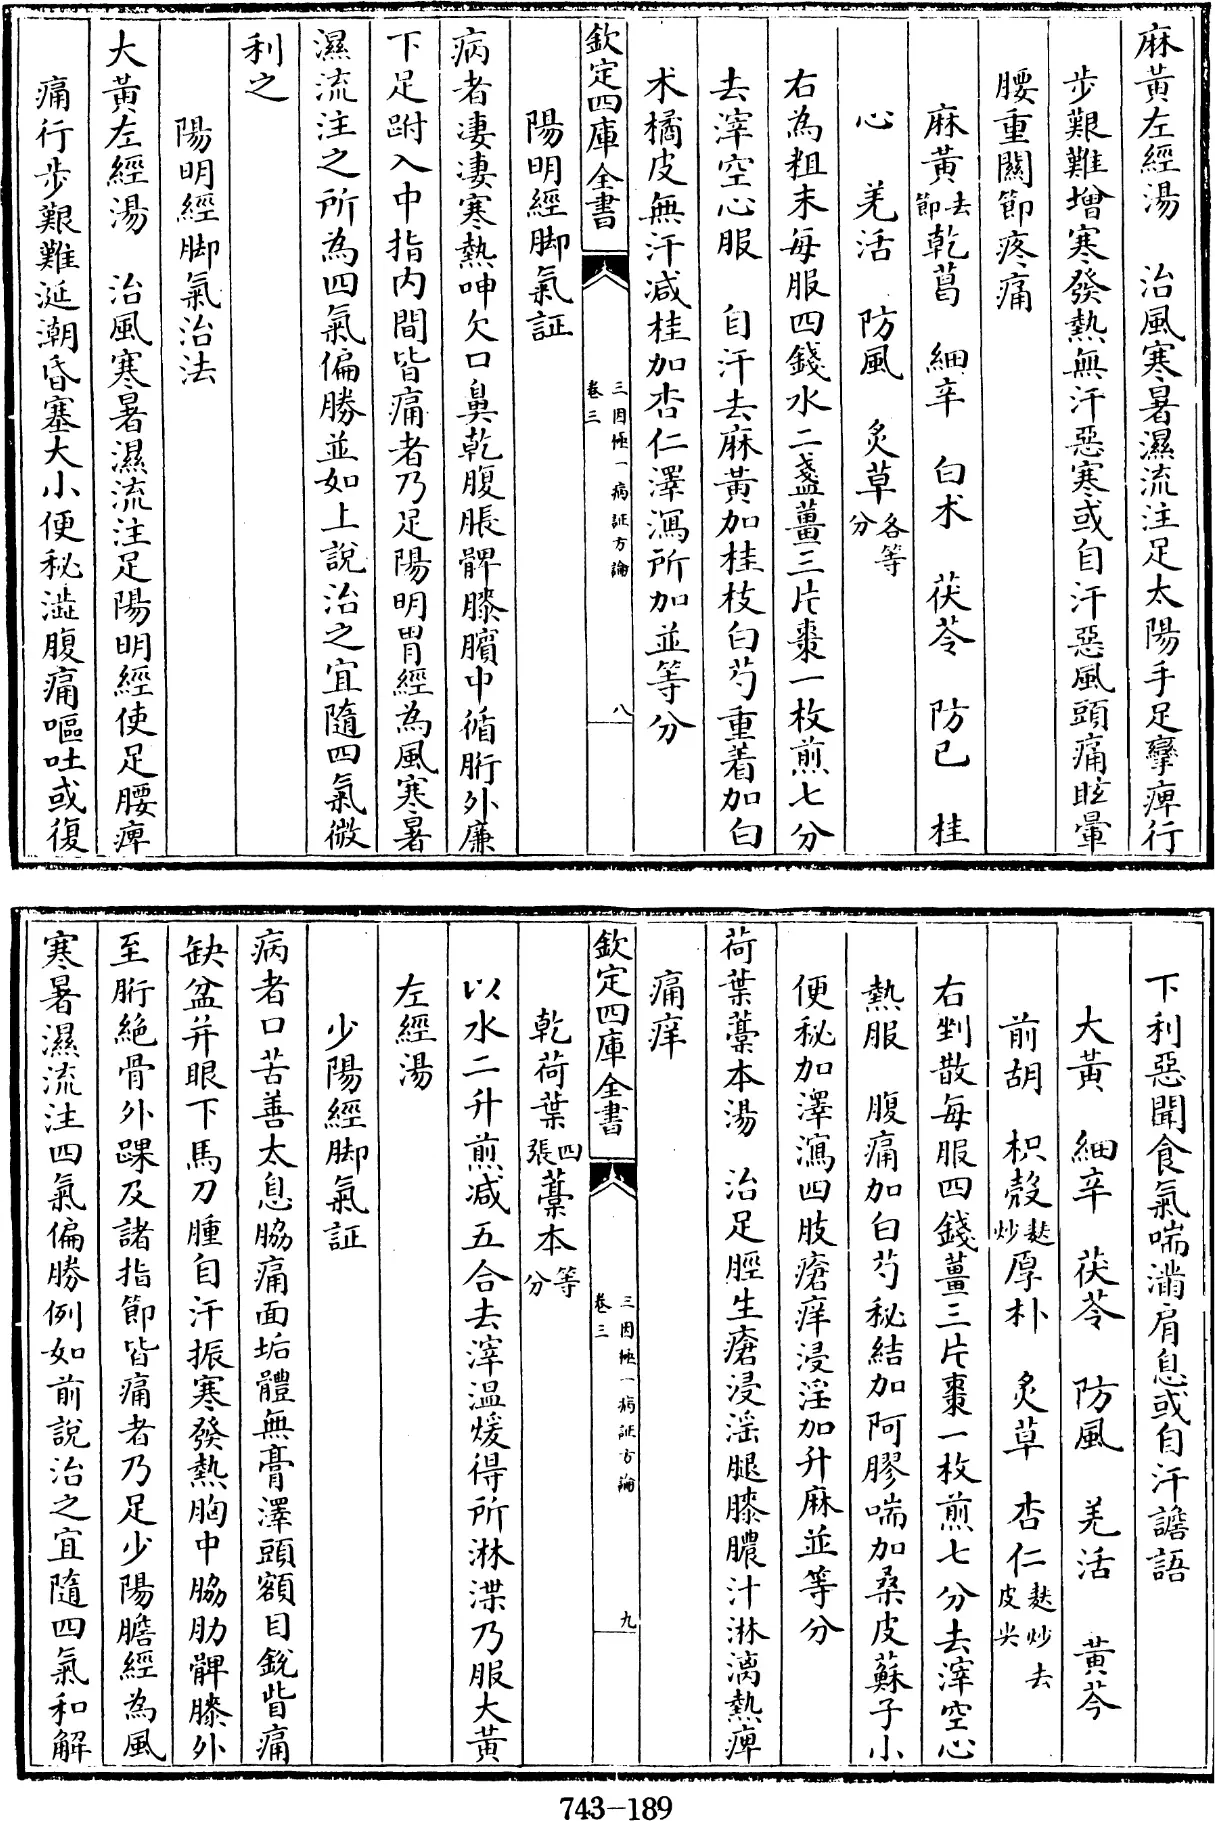 麻黄左經湯　治風寒暑濕流注足太陽手足攣痺行
步艱難增寒發熱無汗惡寒或自汗惡風頭痛眩暈
腰重關節疼痛
麻黄去節　乾葛　細辛　白术　茯苓　防已　桂
心　羌活　防風　炙草各等分
右為粗末每服四錢水二盞薑三片棗一枚煎七分
去滓空心服　自汗去麻黄加桂枝白芍重着加白
术橘皮無汗减桂加杏仁澤瀉所加並等分
欽定四庫全書　三因極一病証方論　卷三　八
陽明經脚氣証
病者凄凄寒熱呻欠口鼻乾腹脹髀膝臏中循胻外廉
下足跗入中指内間皆痛者乃足陽明胃經為風寒暑
濕流注之所為四氣偏勝並如上說治之宜隨四氣微
利之
陽明經脚氣治法
大黄左經湯　治風寒暑濕流注足陽明經使足腰痺
痛行步艱難涎潮昏塞大小便秘澁腹痛嘔吐或復
下利惡聞食氣喘滿肩息或自汗譫語
大黄　細辛　茯苓　防風　羌活　黄芩
前胡　枳殻麩炒　厚朴　炙草　杏仁麩炒去皮尖
右剉散每服四錢薑三片棗一枚煎七分去滓空心
熱服　腹痛加白芍秘結加阿膠喘加桑皮蘇子小
便秘加澤瀉四肢瘡痒浸淫加升麻並等分
荷葉藁本湯　治足脛生瘡浸淫腿膝膿汁淋漓熱痺
痛痒
欽定四庫全書　三因極一病証方論　卷三　九
乾荷葉四張　藁本等分
以水二升煎减五合去滓温煖得所淋渫乃服大黄
左經湯
少陽經脚氣証
病者口苦善太息脇痛面垢體無膏澤頭額目銳眥痛
缺盆并眼下馬刀腫自汗振寒發熱胸中脇肋髀膝外
至胻絶骨外踝及諸指節皆痛者乃足少陽膽經為風
寒暑濕流注四氣偏勝例如前說治之宜隨四氣和解
743-189